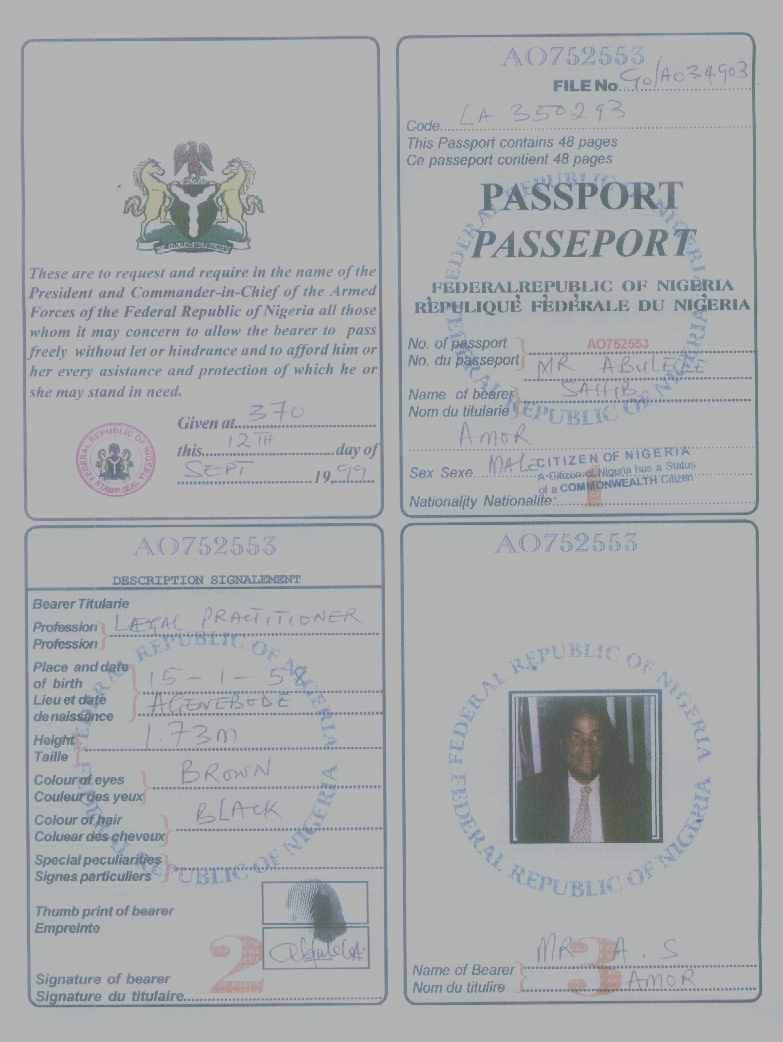 These are to request and require in the name of the
President and Commander-in-Chief of the Armed
Forces of the Federal Republic of Nigeria all those
whom it may concern to allow the bearer to pass
freely without let or hindrance and to afford him or
her every asistance and protection of which he or
she may stand in need.
Given at 370
this 12TH day of
SEPT 1999
AO752553
FILE No GO/A034903
Code LA 350293
This Passport contains 48 pages
Ce passeport contient 48 pages
PASSPORT
PASSEPORT
FEDERAL REPUBLIC OF NIGERIA
REPULIQUE FEDERALE DU NIGERIA
No. of passport AO752553
No. du passeport
MR ABULELE
Name of bearer SAHIB
Nom du titularie
AMOR
Sex Sexe MALE
CITIZEN OF NIGERIA
A Citizen of Nigeria has a Status
of a COMMONWEALTH Citizen
Nationality Nationalite
1
FEDERAL REPUBLIC OF NIGERIA
AO752553
DESCRIPTION SIGNALEMENT
Bearer Titularie
Profession LEGAL PRACTITIONER
Profession
Place and date
of birth 15-1-58
Lieu et date AGENEBODE
de naissance
Height 1.73m
Taille
Colour of eyes BROWN
Couleur des yeux
Colour of hair BLACK
Coluear des cheveux
Special peculiarities
Signes particuliers
Thumb print of bearer
Empreinte
Signature of bearer
Signature du titulaire
2
FEDERAL REPUBLIC OF NIGERIA
AO752553
FEDERAL REPUBLIC OF NIGERIA
FEDERAL REPUBLIC OF NIGERIA
MR A.S
Name of Bearer
Nom du titulire AMOR
3